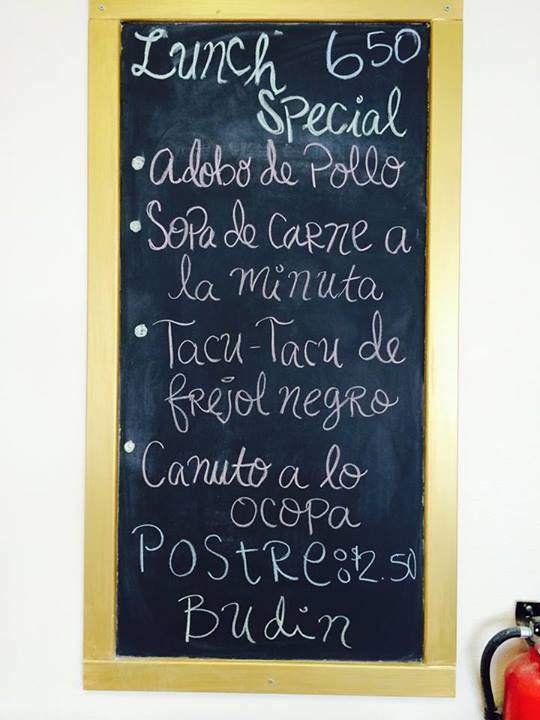 Lunch 650
Special
• Adobo de Pollo
• Sopa de Carne a
la minuta
• Tacu-Tacu de
frejol negro
• Canuto a lo
ocopa
Postre: $2.50
Budin